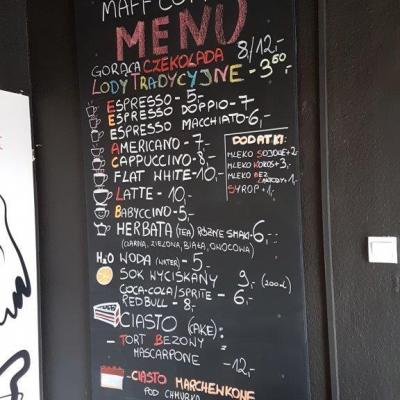 MAFF CO
MENU
GORĄCA CZEKOLADA 8/12,-
LODY TRADYCYJNE - 3,50
ESPRESSO - 5,-
ESPRESSO DOPPIO - 7
ESPRESSO MACCHIATO - 6,-
AMERICANO - 7,-
CAPPUCCINO - 8,-
FLAT WHITE - 10,-
LATTE - 10,-
BABYCCINO - 5,-
DODATKI:
MLEKO SOJOWE +2,-
MLEKO KOKOS +3,-
MLEKO BEZ LAKTOZY +1,-
SYROP +1,-
HERBATA (TEA) RÓŻNE SMAKI - 6,-
(CZARNA, ZIELONA, BIAŁA, OWOCOWA)
H2O WODA (WATER) - 5
SOK WYCISKANY 9,- (200ml)
COCA-COLA/SPRITE - 6,-
RED BULL - 8,-
CIASTO (CAKE):
- TORT BEZOWY
MASCARPONE -12,-
- CIASTO MARCHEWKOWE
POD CHMURKĄ